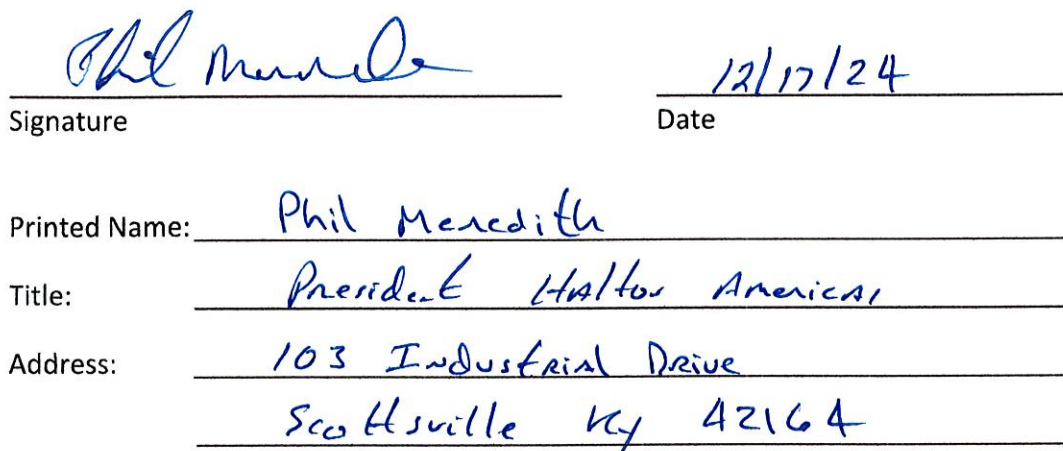 Phil Meredith 12/17/24
Signature Date
Printed Name: Phil Meredith
Title: President Halton Americas
Address: 103 Industrial Drive
Scottsville Ky 42164